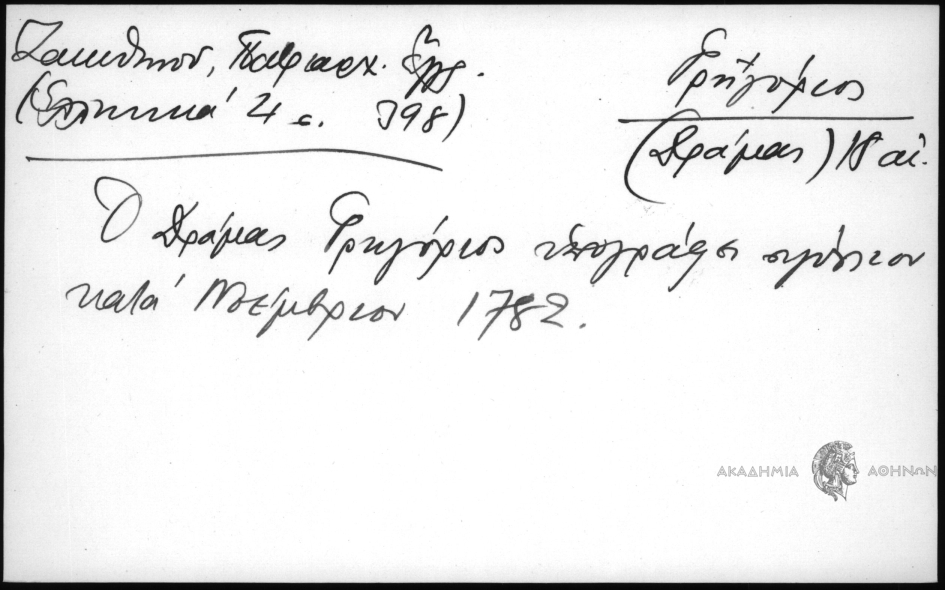 Ζακυθηνοῦ, Πατριαρχ. Ἔγγρ.
(Ἑλληνικά 4 σ. 398)
Γρηγόριος
(Δράμας) 18 αἰ.
Ὁ Δράμας Γρηγόριος ὑπογράφει σιγίλλιον
κατά Νοέμβριον 1782.
ΑΚΑΔΗΜΙΑ ΑΘΗΝΩΝ